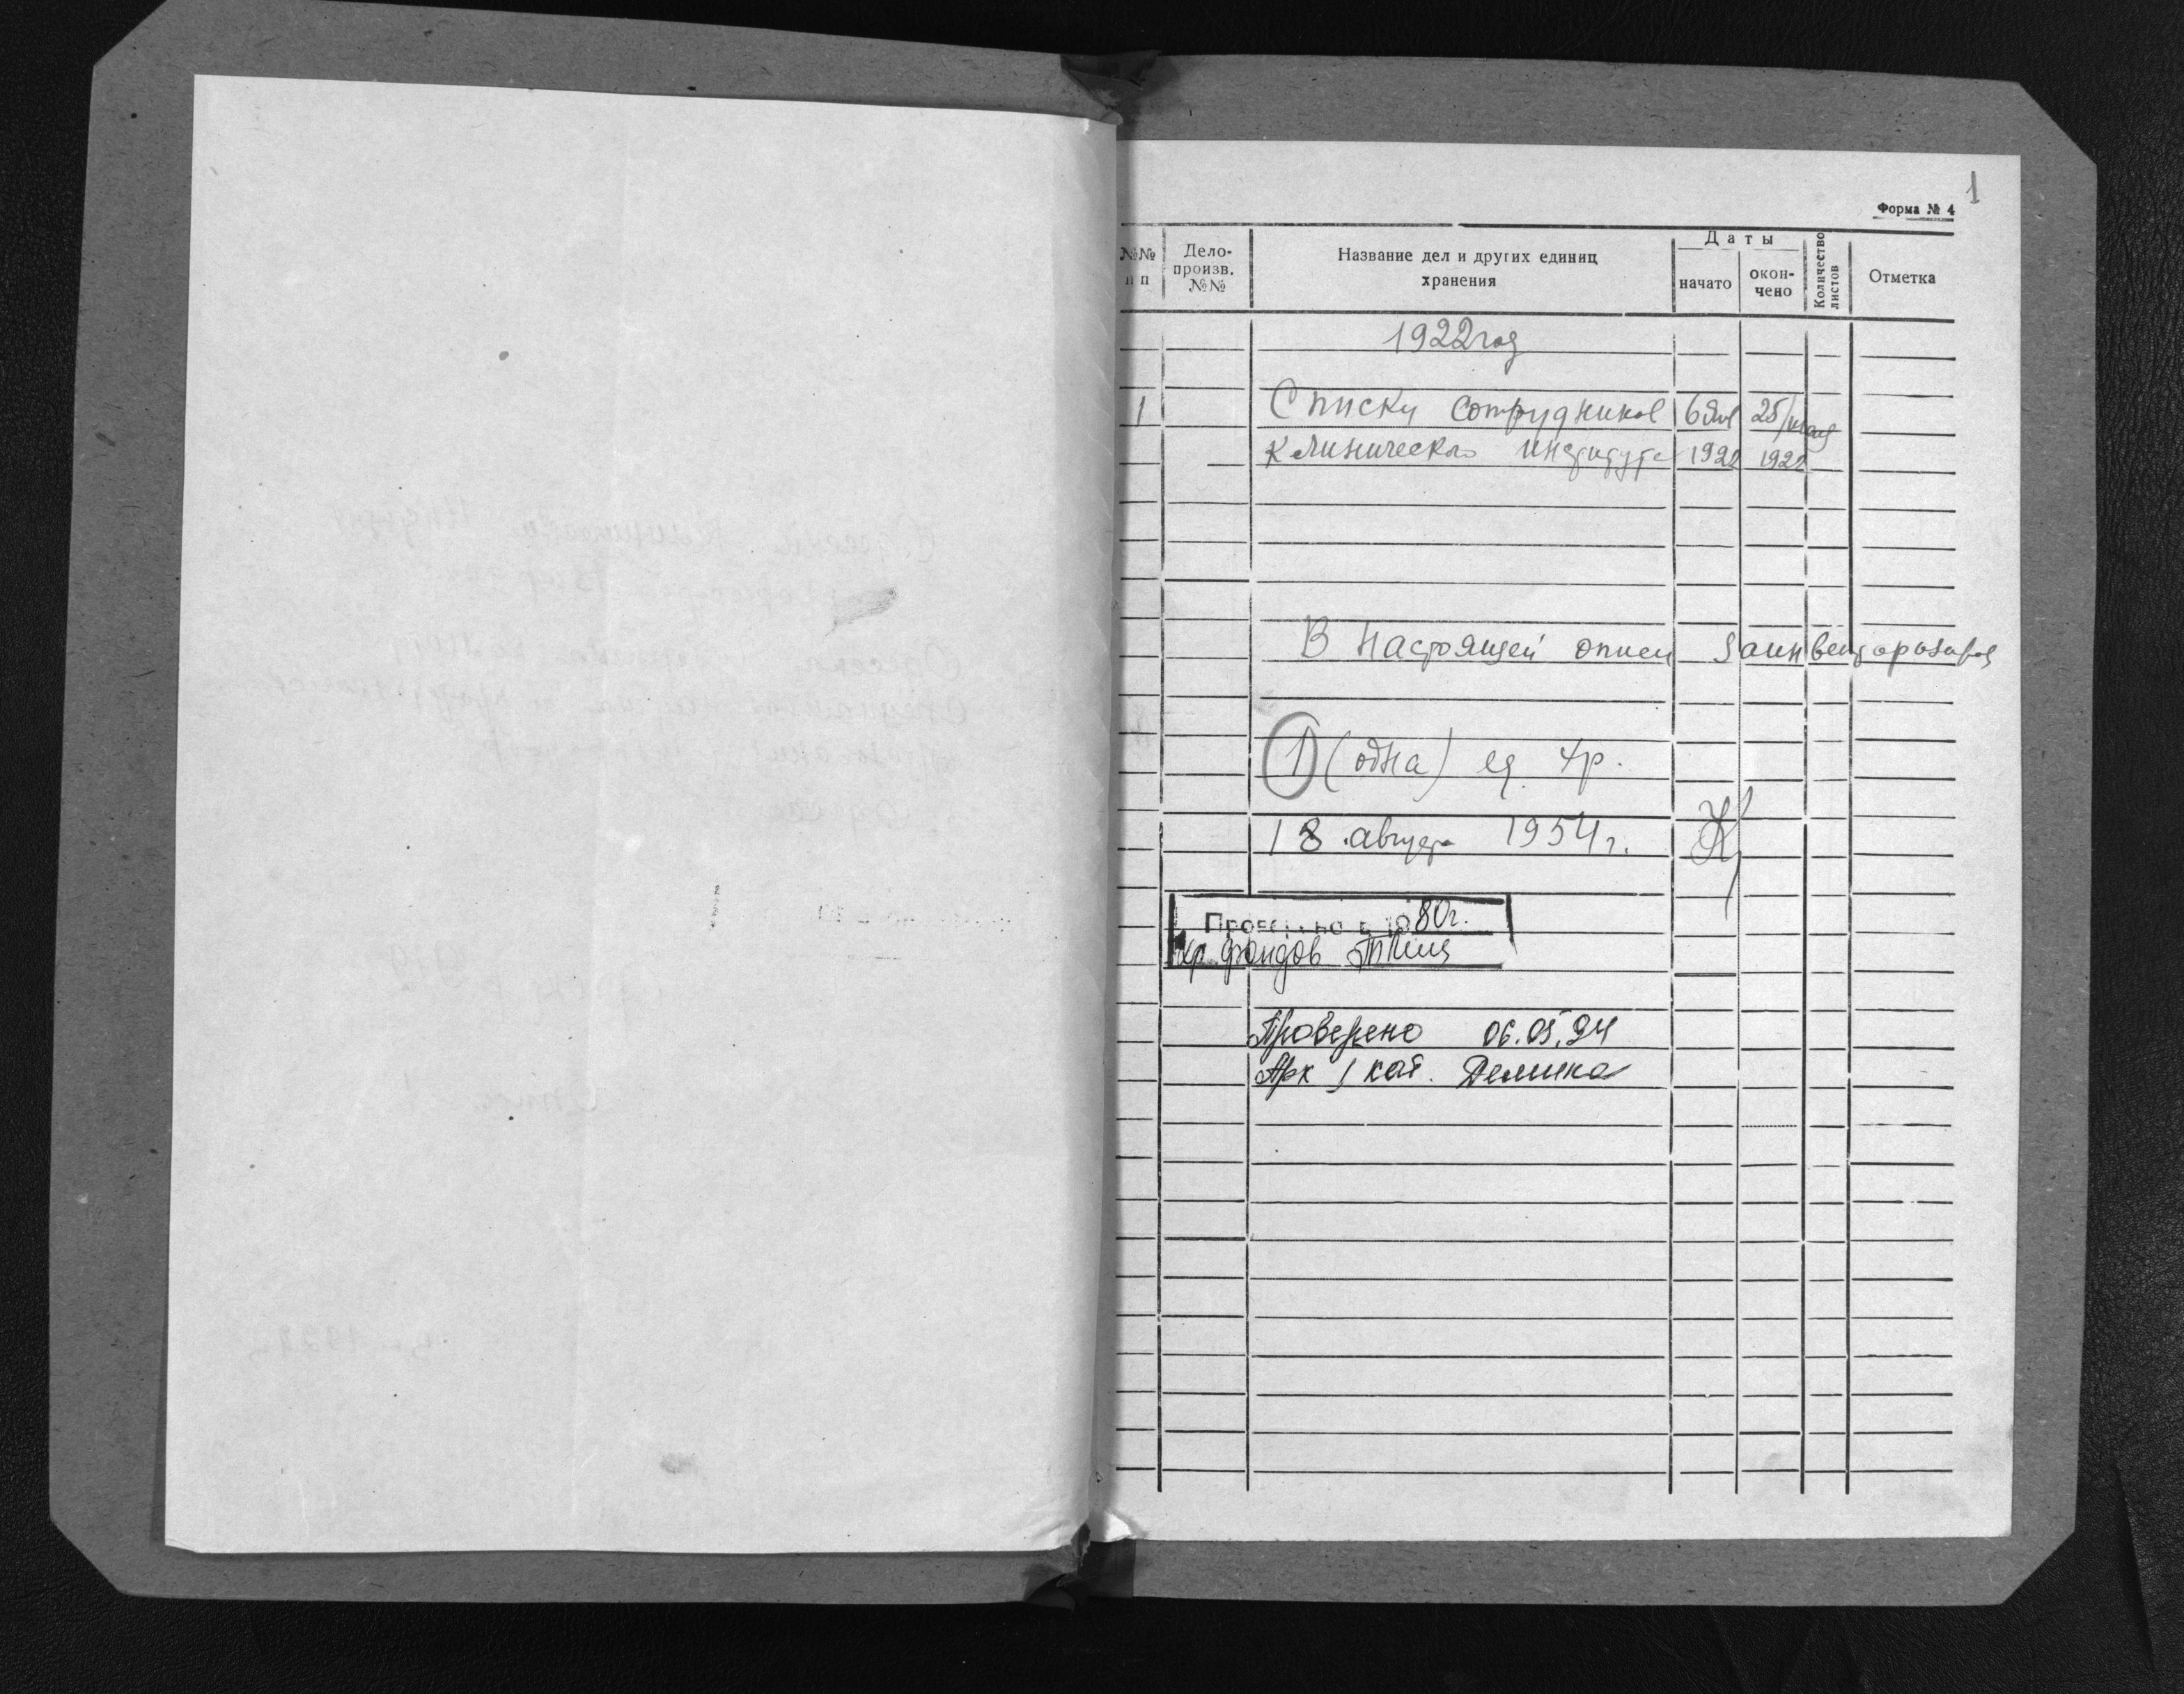 1
Форма № 4
№№ п п
Дело-произв. №№
Название дел и других единиц хранения
Даты
начато
окон-чено
Количество листов
Отметка
1922 год
1 Списки сотрудников 6 янв 25/
Клинического института 1922 1922
В настоящей описи заинвентаризов
1 (одна) ед. хр.
18 августа 1954 г.
Проверено в 1980 г.
хр. фондов
Проверено 06.05.94
Арх I кат.